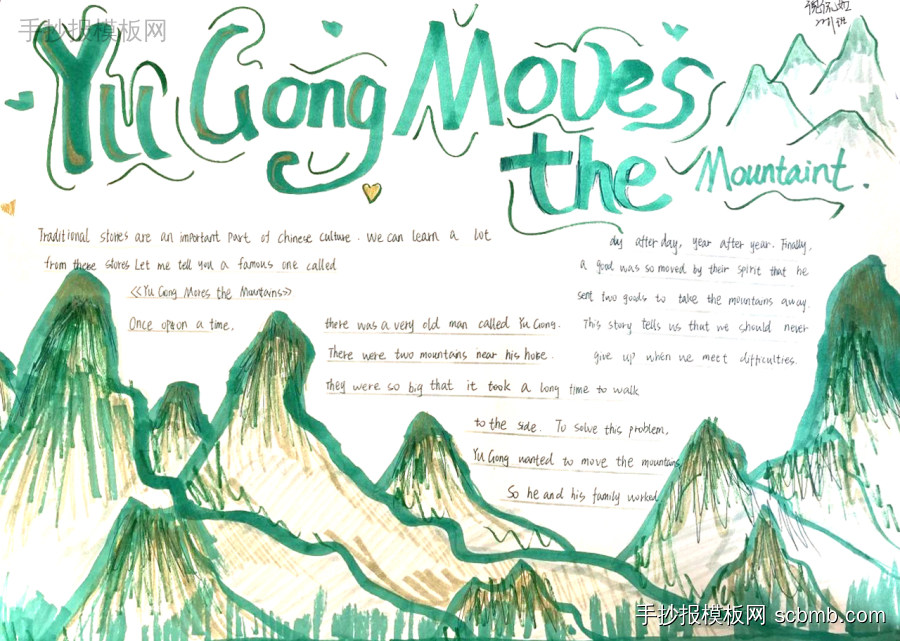 手抄报模板网
Yu Gong Moves
the Mountaint.
Traditional stores are an important part of chinese culture. We can learn a lot
from there stores Let me tell you a famous one called
《Yu Gong Mores the Muntains》
Once opton a time,
there was a very old man called Yu Gong.
There were two mountains near his hoke.
they were so big that it took a long time to walk
to the side. To solve this problem,
Yu Gong wanted to move the mountains
So he and his family worked
day after day, year after year. Finally,
a goad was so moved by their spirit that he
sent two goods to take the mountains away.
This story tells us that we should never
give up when we meet difficulties.
手抄报模板网 scbmb.com